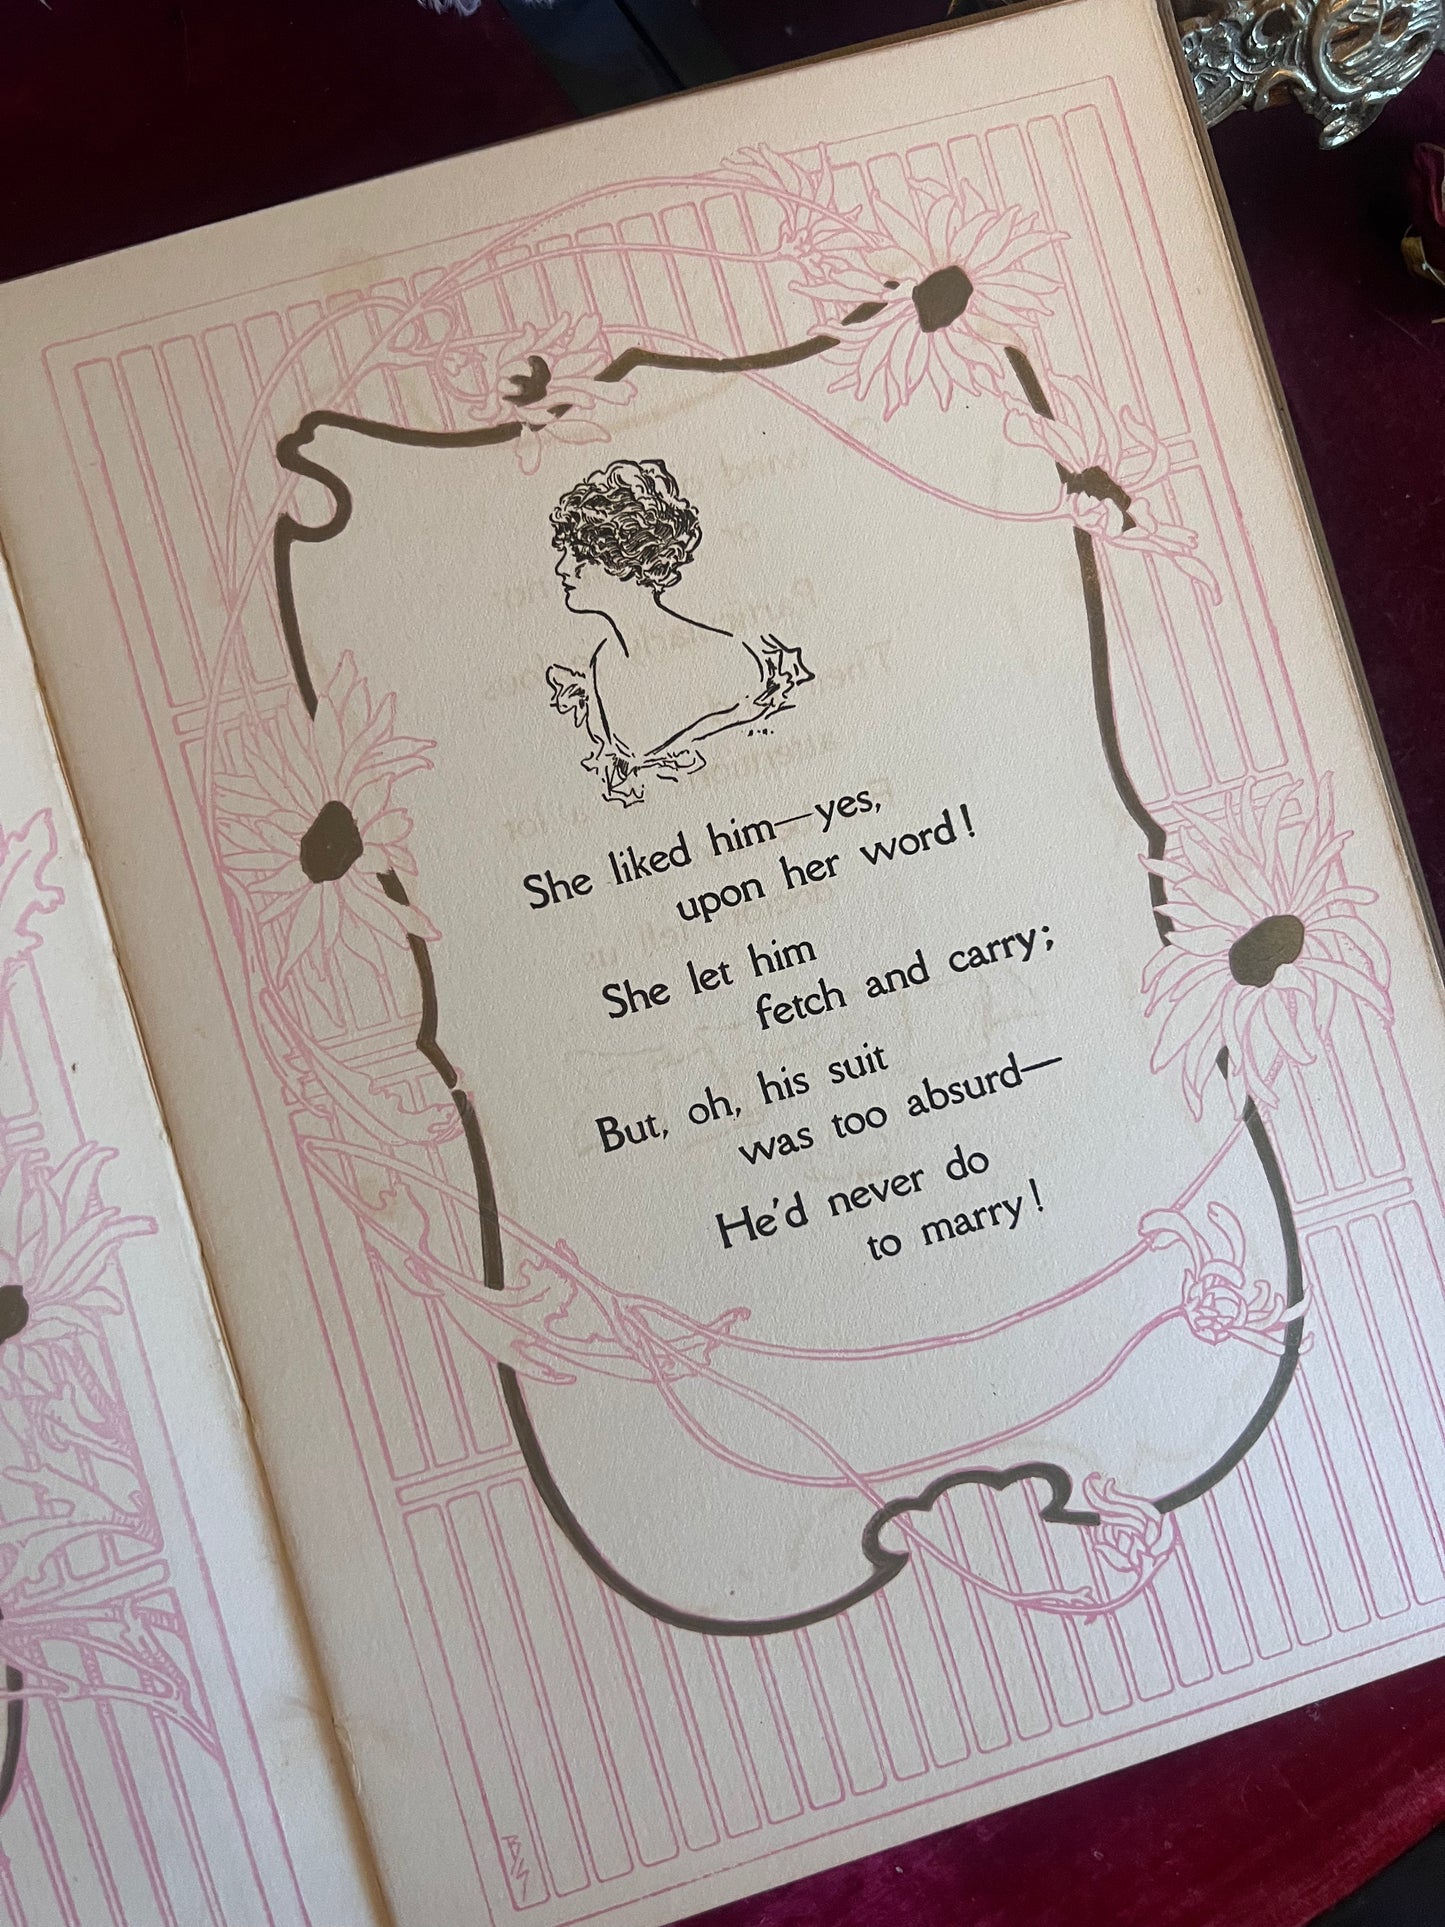 She liked him—yes,
upon her word!
She let him
fetch and carry;
But, oh, his suit
was too absurd—
He'd never do
to marry!